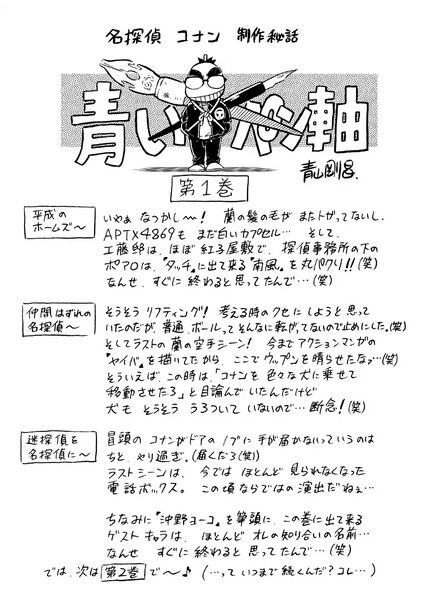 名探偵 コナン 制作秘話
青い ペン軸
青山剛昌.
第1巻
平成の
ホームズ〜
いやぁ なつかし〜! 蘭の髪の毛が まだトガってないし、
APTX4869も まだ白いカプセル… そして、
工藤邸は、ほぼ紅子屋敷で、探偵事務所の下の
ポアロは、『タッチ』に出て来る『南風』を丸パクリ!!(笑)
なんせ、すぐに終わると思ってたんで…(笑)
仲間はずれの
名探偵〜
そうそう リフティング! 考える時のクセにしようと思って
いたのだが 普通、ボールってそんなに転がってないので止めにした。(笑)
そしてラストの蘭の空手シーン! 今までアクションマンガの
『ヤイバ』を描いてたから、ここでウップンを晴らせたなァ…(笑)
そういえば、この時は、「コナンを色々な犬に乗せて
移動させたろ」と目論んでいたんだけど
犬も そうそう うろついていないので… 断念!(笑)
迷探偵を
名探偵に〜
冒頭の コナンがドアのノブに手が届かないっていうのは
ちと、やり過ぎ。(届くだろ(笑))
ラストシーンは、今では ほとんど見られなくなった
電話ボックス。 この頃ならではの演出だねぇ…
ちなみに『沖野ヨーコ』を筆頭に、この巻に出て来る
ゲストキャラは、ほとんど オレの知り合いの名前…
なんせ すぐに終わると思ってたんで…(笑)
では、次は 第2巻 で〜♪ (…って いつまで続くんだ?コレ…)